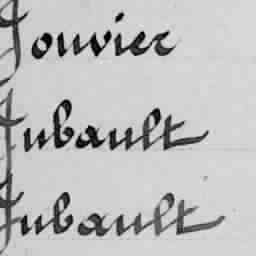 Jouvier
Jubault
Jubault